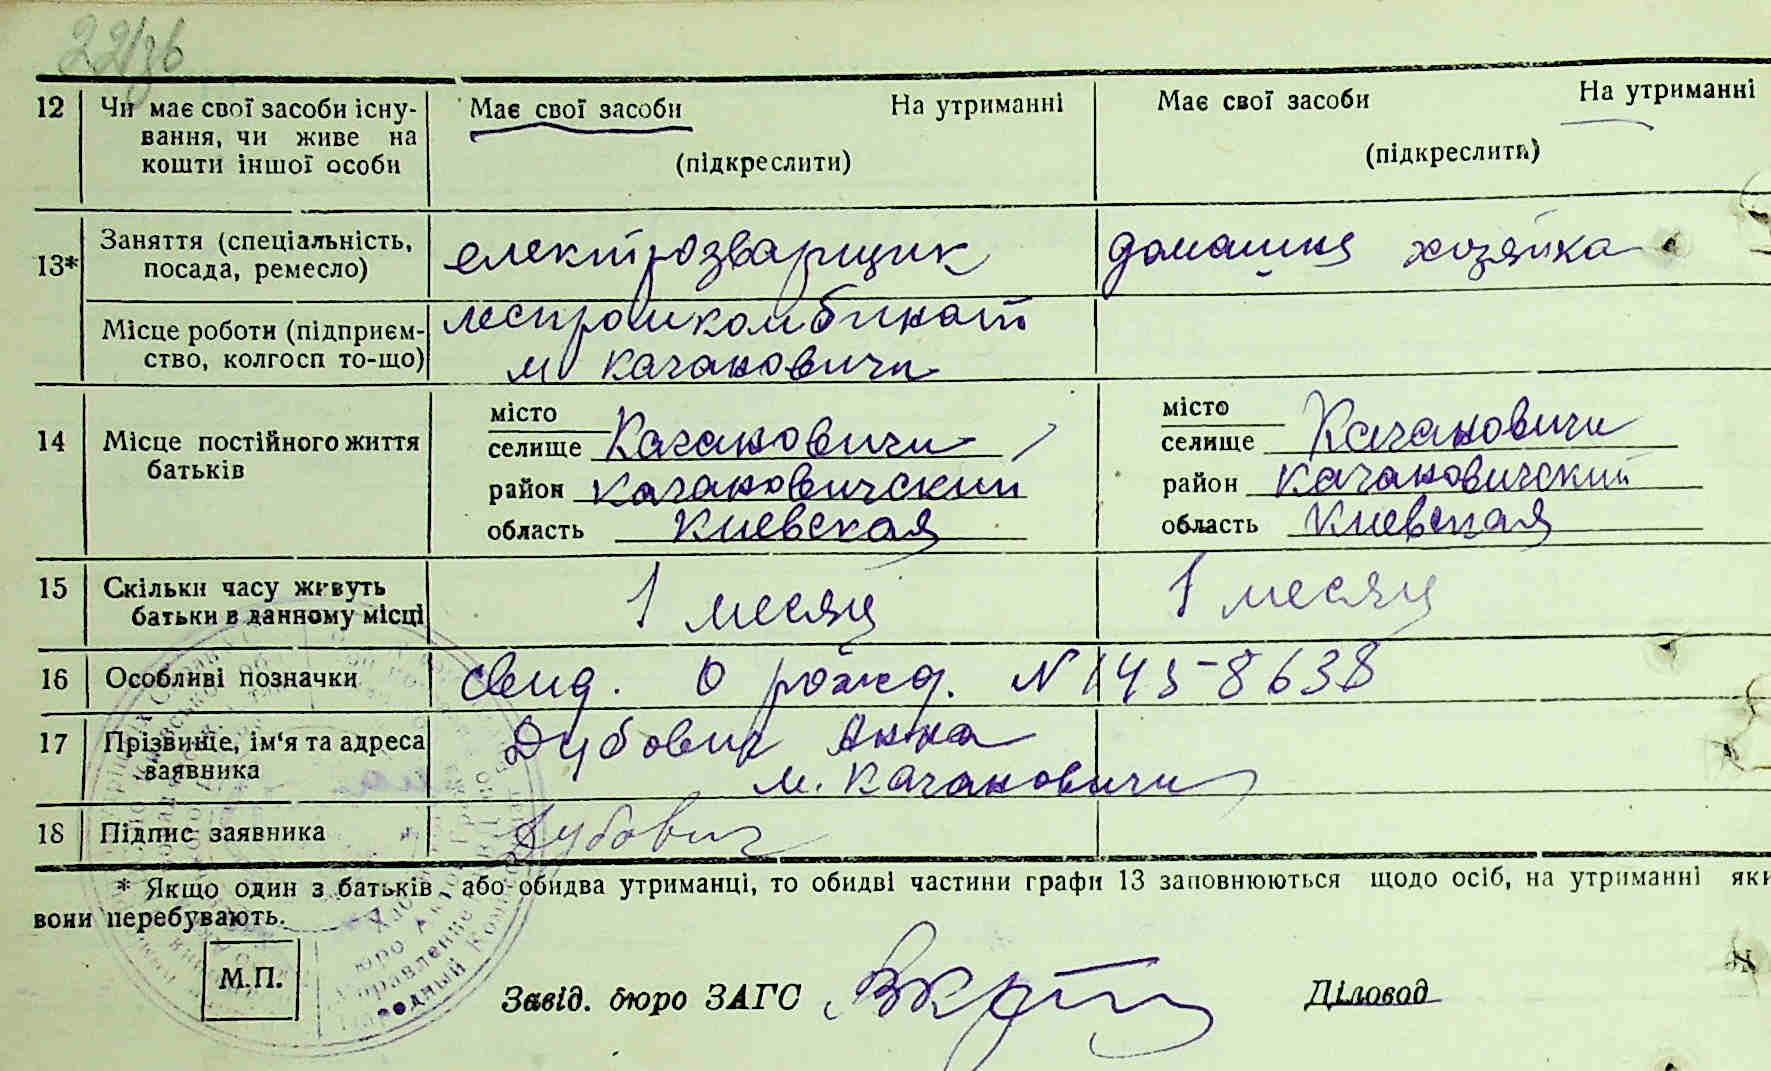 22/зв
12 Чи має свої засоби існу- Має свої засоби На утриманні Має свої засоби На утриманні
вання, чи живе на
кошти іншої особи (підкреслити) (підкреслити)
13* Заняття (спеціальність, електрозварщик домашня хозяйка
посада, ремесло)
Місце роботи (підприєм- леспромкомбинат
ство, колгосп то-що) м Кагановичи
14 Місце постійного життя місто місто
батьків селище Кагановичи селище Кагановичи
район Кагановичский район Кагановичский
область Киевская область Киевская
15 Скільки часу живуть 1 месяц 1 месяц
батьки в данному місці
16 Особливі позначки Свид. О рожд. N 145-8638
17 Прізвище, ім'я та адреса Дубович Анна
заявника м. Кагановичи
18 Підпис заявника Дубович
* Якщо один з батьків або обидва утриманці, то обидві частини графи 13 заповнюються щодо осіб, на утриманні яки
вони перебувають.
М.П.
Завід. бюро ЗАГС Діловод